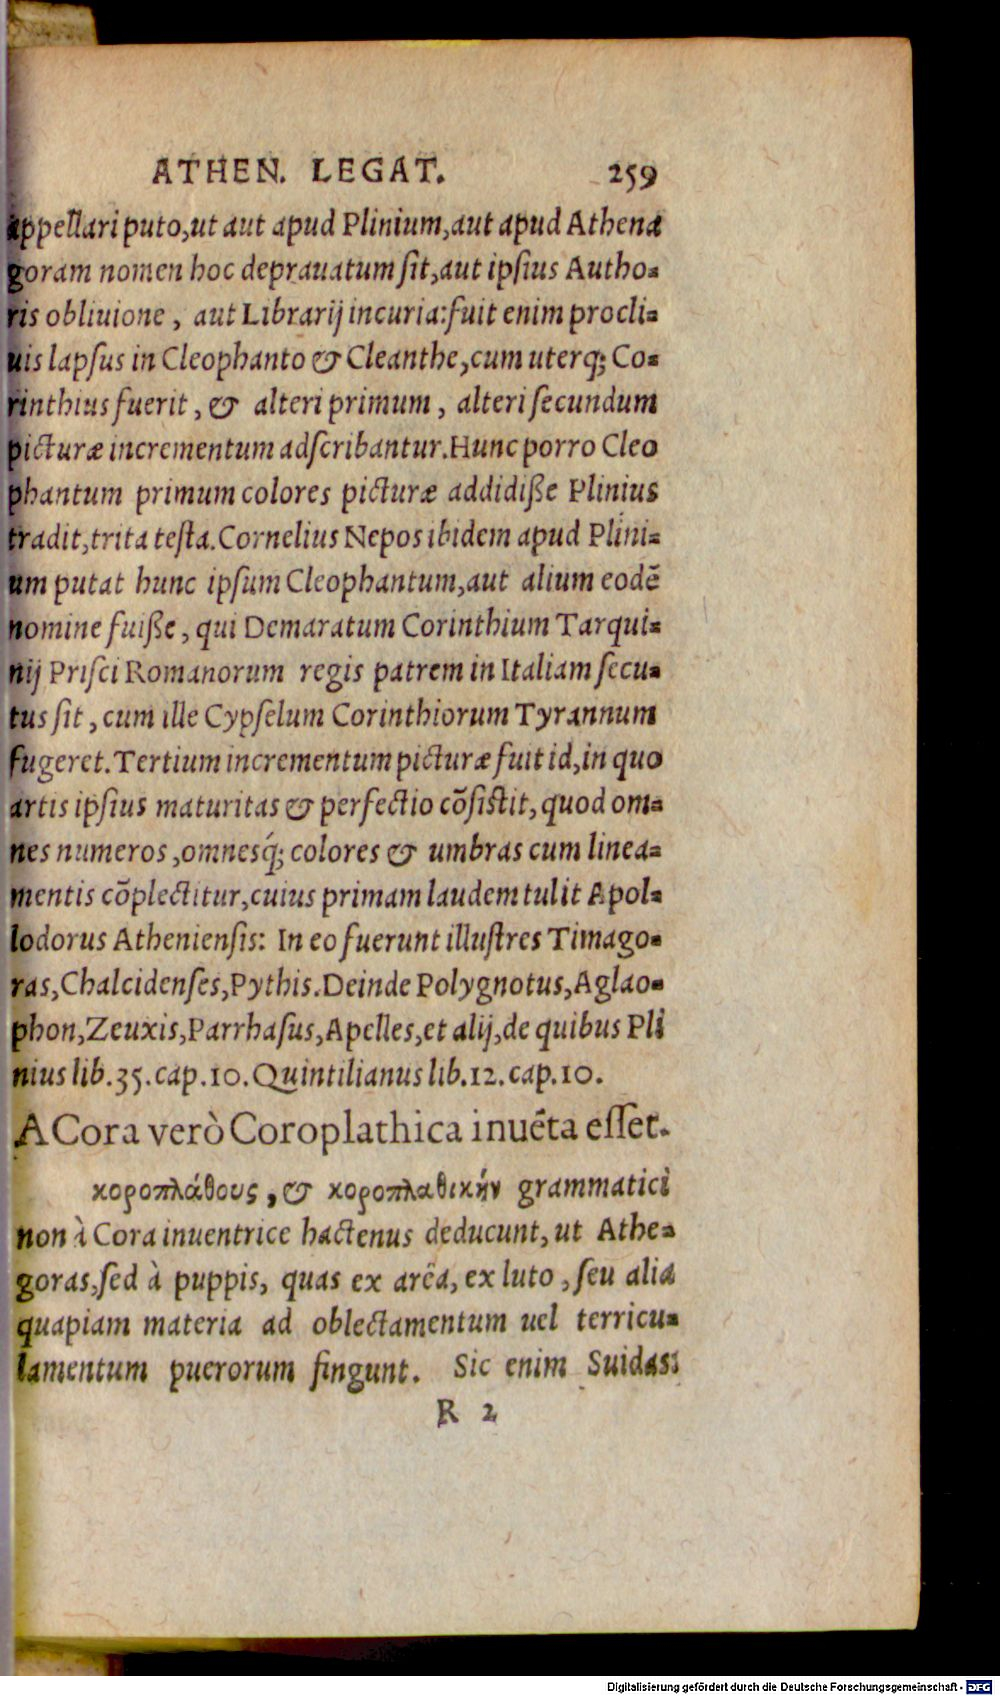 ATHEN. LEGAT. 259
appellari puto, ut aut apud Plinium, aut apud Athena
goram nomen hoc deprauatum ſit, aut ipſius Autho-
ris obliuione, aut Librarij incuria: fuit enim procli-
uis lapſus in Cleophanto & Cleanthe, cum uterq; Co-
rinthius fuerit, & alteri primum, alteri ſecundum
picturæ incrementum adſcribantur. Hunc porro Cleo
phantum primum colores picturæ addidiſſe Plinius
tradit, trita teſta. Cornelius Nepos ibidem apud Plini-
um putat hunc ipſum Cleophantum, aut alium eodē
nomine fuiſſe, qui Demaratum Corinthium Tarqui-
nij Priſci Romanorum regis patrem in Italiam ſecu-
tus ſit, cum ille Cypſelum Corinthiorum Tyrannum
fugeret. Tertium incrementum picturæ fuit id, in quo
artis ipſius maturitas & perfectio cōſiſtit, quod om-
nes numeros, omnesq́; colores & umbras cum linea-
mentis cōplectitur, cuius primam laudem tulit Apol-
lodorus Athenienſis: In eo fuerunt illuſtres Timago-
ras, Chalcidenſes, Pythis. Deinde Polygnotus, Aglao-
phon, Zeuxis, Parrhaſus, Apelles, et alij, de quibus Pli
nius lib. 35. cap. 10. Quintilianus lib. 12. cap. 10.
A Cora verò Coroplathica inuēta eſſet.
κοροπλάθους, & κοροπλαθικήν grammatici
non à Cora inuentrice hactenus deducunt, ut Athe-
goras, ſed à puppis, quas ex arēa, ex luto, ſeu alia
quapiam materia ad oblectamentum uel terricu-
lamentum puerorum fingunt. Sic enim Suidas:
R 2
Digitalisierung gefördert durch die Deutsche Forschungsgemeinschaft - DFG